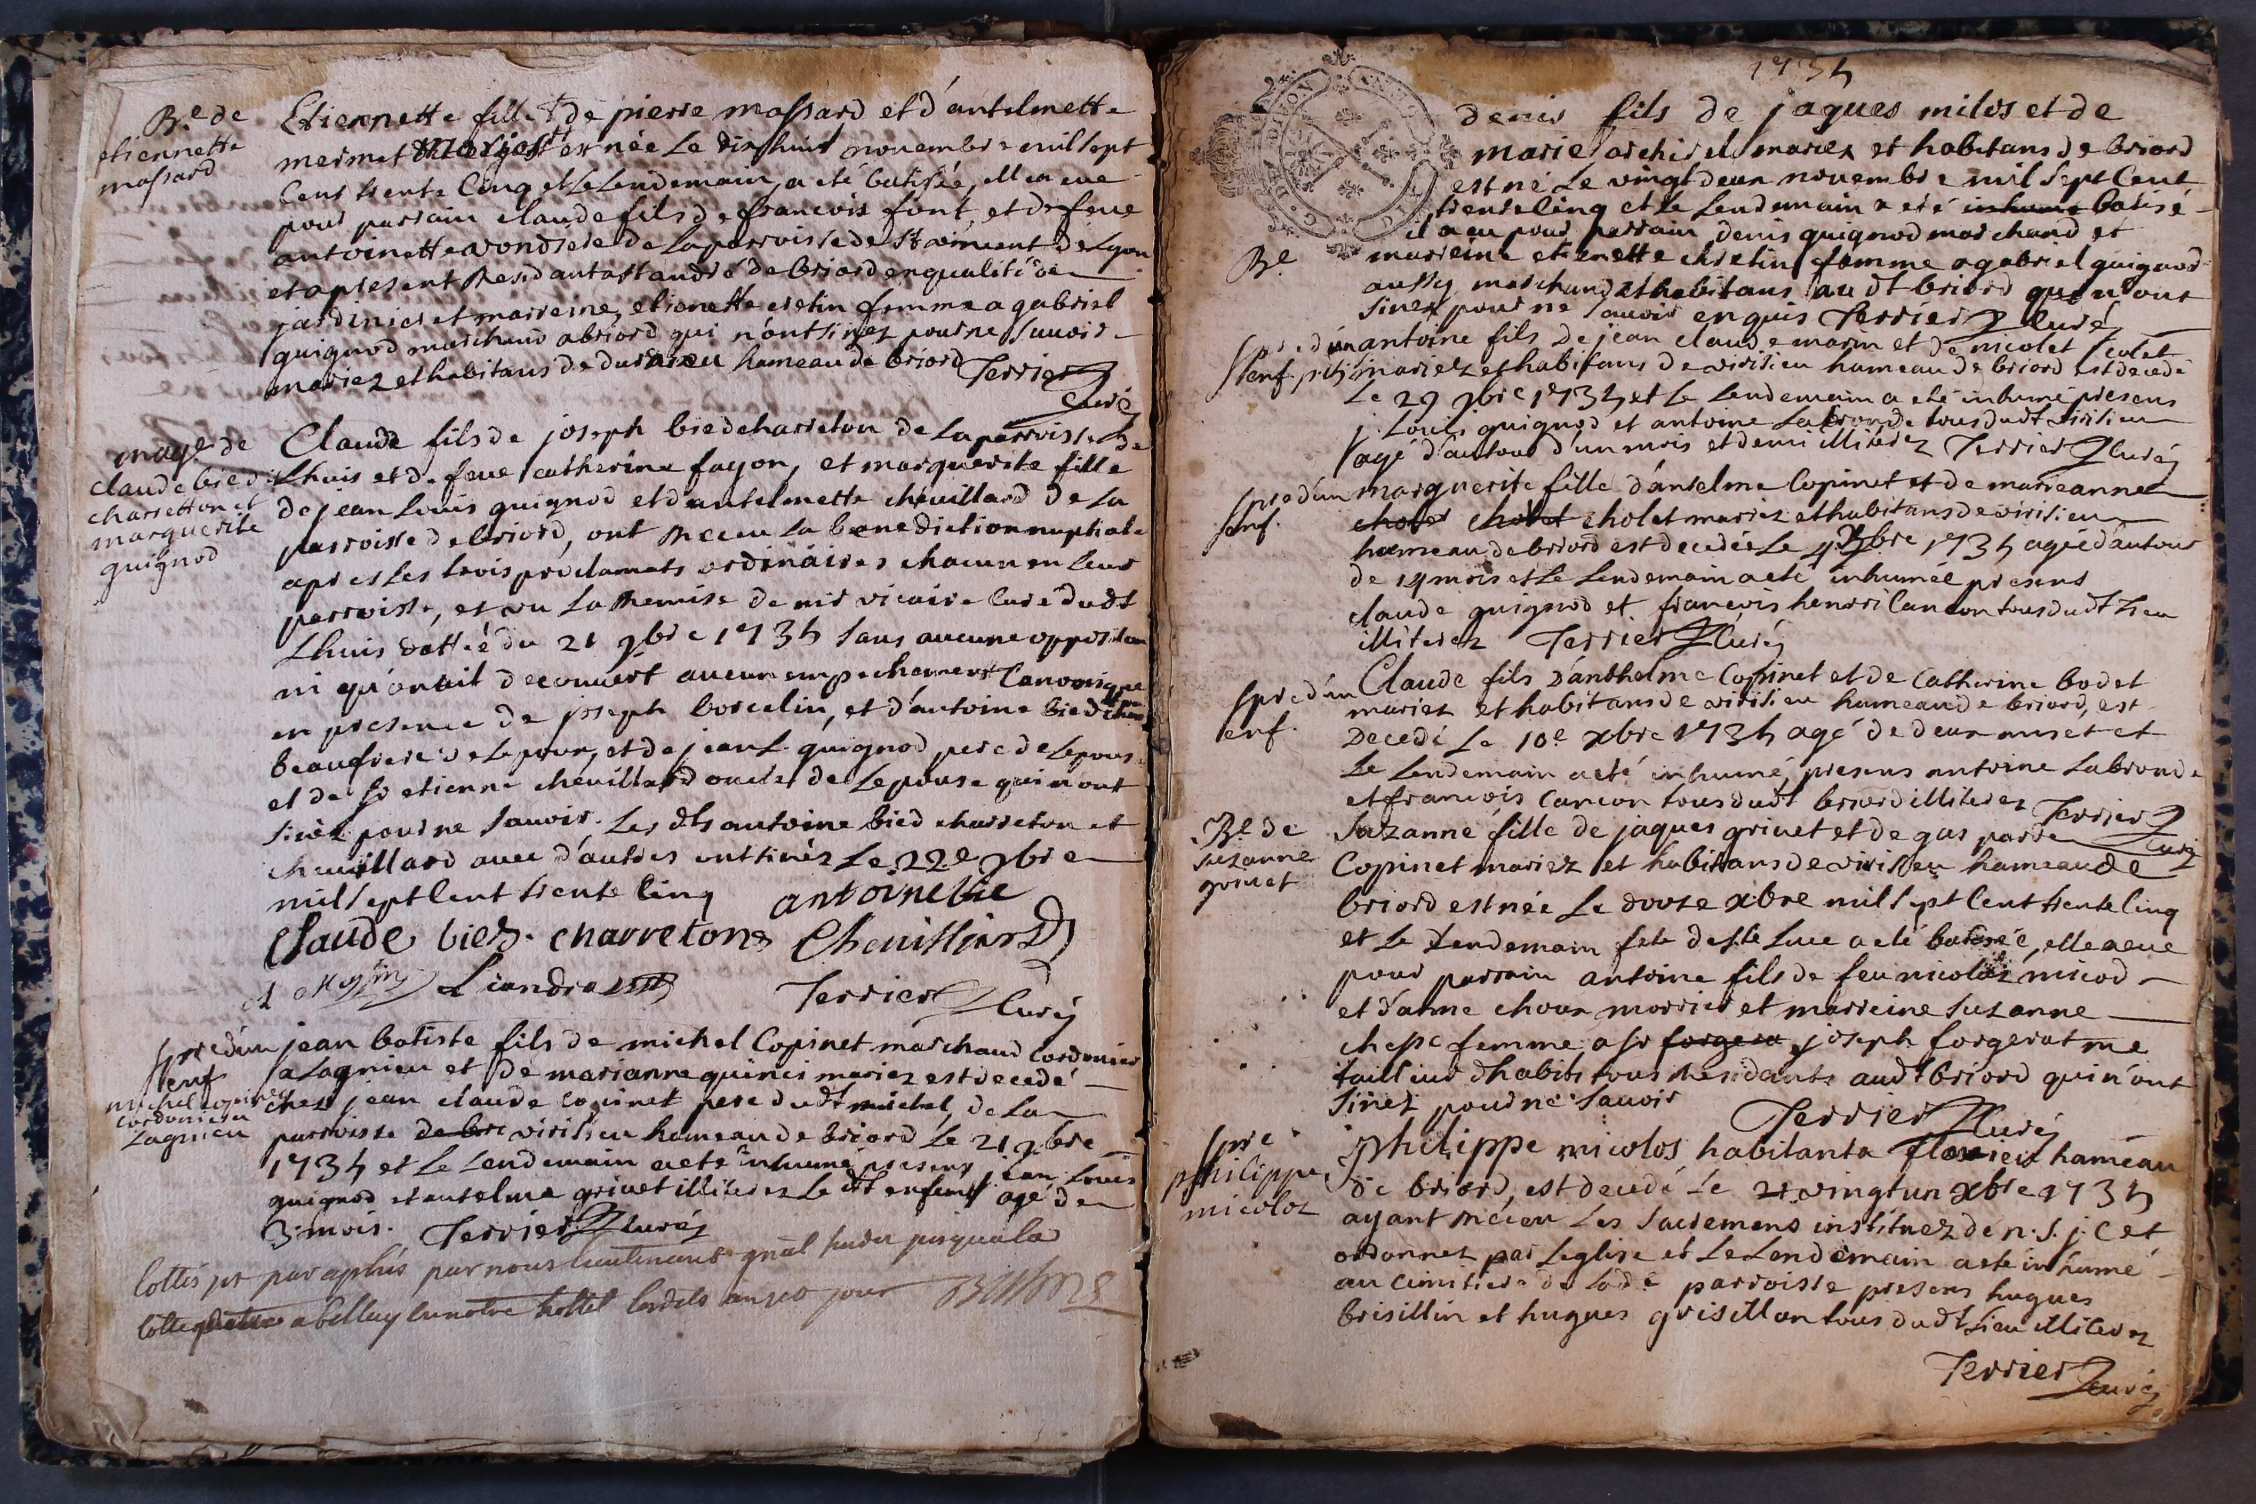 Be de
etiennette
massard
Etiennette fille de pierre massard et d'antelmette
mermet née Le dixhuit novembre mil sept
Cent trente Cinq et Le Lendemain, a eté batisée, elle a eue
pour parrain claude fils de francois font et de feue
antoinette de La parroisse de St vincent de Lyon
et apresent Residant a st andré de briord en qualité de
jardinier et marreine, etienette cretin femme a gabriel
guignod marchand a briord qui n'ont sinez pour ne Sauoir
mariez et habitans de hameau de briord Terrier
Curé
mage de
claude bied
charretton et
marguerite
guignod
Claude fils de joseph bied charreton de La parroisse de
Lhuis et de feue catherine fayon, et marguerite fille
de jean Louis guignod et d'antelmette cheuillard de La
parroisse de briord, ont Receu La benediction nuptiale
apres Les trois proclamats ordinaires chacun en Leur
parroisse, et vu La Remise de mr vicaire Curé dudt
Lhuis dattée du 21 9bre 1735 sans aucune opposition
ni qu'on ait decouuert aucun empechement Canonique
en presence de joseph borcelin, et d'antoine bied char
beaufrere de Lepoux, et de jean L. guignod pere de Lepouse
et de Sr etienne cheuillard oncle de Lepouse qui n'ont
sinéz pour ne Sauoir. Les dts antoine bied charreton et
cheuillard auec d'autres ont sinéz Le 22e 9bre
mil sept Cent trente Cinq antoine bie
Claude biez. charretons Cheuilliard
Liandras Terrier Curé
Spre d'un
enf
michel copinet
cordonier a
Lagnieu
jean batiste fils de michel Copinet marchand Cordonier
a Lagnieu et de marianne quinci mariez est decedé
chez jean claude copinet pere dudt michel, de La
parroisse de bri virisieu hameau de briord Le 21 9bre
1735 et Le Lendemain a eté inhumé presens jean Louis
guignod et antelme griuet illiterez Le dt enfent agé de
3 mois. Terrier Curé
Cottés et paraphés par nous Lieutenant gnâl
a belley en notre hottel Lesdits an et jour
1735
denis fils de jaques milos et de
marie mariez et habitans de briord
est né Le vingt deux novembre mil Sept Cent
trente Cinq et Le Lendemain a eté inhumé batisé
Be
il a eu pour parrain denis guignod marchand et
marreine etienette cretin femme a gabriel guignod
aussy marchand et habitans au dt briord qui n'ont
sinez pour ne Sauoir enquis Terrier Curé
Spre d'un
enf
antoine fils de jean claude marin et de nicolet
mariez et habitans de virisieu hameau de briord est decedé
Le 29 9bre 1735 et Le Lendemain a eté inhumé presens
j. Louis guignod et antoine Labronde tous dudt virisieu
agé d'autour d'un mois et demi illiterez Terrier Curé
Spre d'un
enf.
marguerite fille d'anselme Copinet et de marieanne
cholet cholet cholet mariez et habitans de virisieu
hameau de briord est decedée Le 1735 agée d'autour
de 14 mois et Le Lendemain a eté inhumée presens
claude guignod et francois henri Cancon tous dudt Lieu
illiterez Terrier Curé
Spre d'un
enf.
Claude fils D'anthelme Copinet et de Catherine bodet
mariez et habitans de virisieu hameau de briord, est
Decedé Le 10e xbre 1735 agé de deux et
Le Lendemain a eté inhumé, presens antoine Labronde
et francois Cancon tous dudt briord illiterez Terrier
Curé
Be de
suzanne
griuet
Suzanne fille de jaques griuet et de gasparde
Copinet mariez et habitans de virisieu hameau de
briord est née Le douze xbre mil sept Cent trente Cinq
et Le Lendemain fete de ste Luce a eté batisée, elle a eue
pour parrain antoine fils de feu nicolas micod
et d'anne choux morrier et marreine suzanne
femme a Sr forgera joseph forgerat me
tailleur d'habits tous Residants audt briord qui n'ont
Sinez pour ne Sauoir Terrier Curé
Spre
philippe
micoloz
Philippe micolos habitant a flourieu hameau
de briord, est decedé Le 21 vingt un xbre 1735
ayant Receu Les Sacremens instituez de n. S. j. C et
ordonnez par Leglise et Le Lendemain a eté inhumé
au cimitiere de Lade parroisse presens hugues
brisillin et hugues grisillon tous dudt Lieu illiterez
Terrier Curé